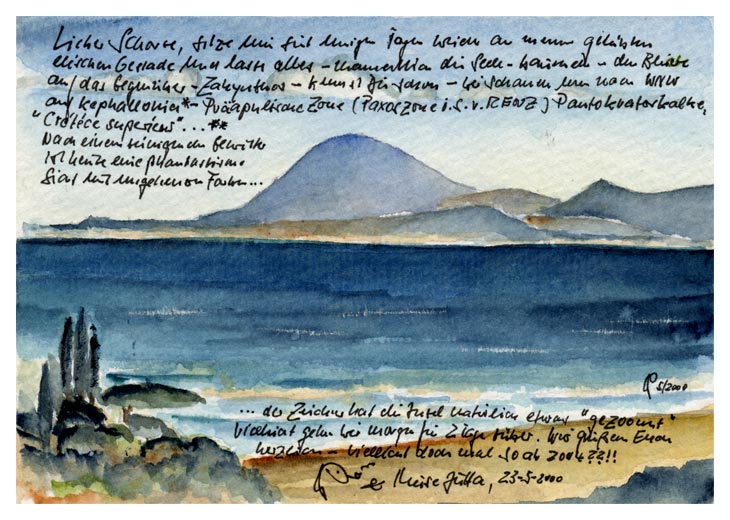 Lieber Schorse, sitze seit einigen Tagen wieder an meinem geliebten
elischen Gestade und lasse alles – die Seele – – der Blick
auf das – Zakynthos – – wir schauen nun nach WNW
auf Kephallonia* – Präapulische Zone (Paxos Zone i.S.v. RENZ) Pantokratorkalke,
"Crétacé supérieur"... **
Nach einem Gewitter
ist heute eine phantastische
Sicht mit Farben...
5/2000
... der Zeichner hat die Insel natürlich etwas "gezoomt"
vielleicht gehen wir morgen für 2 Tage rüber. Wir grüßen Euch
herzlich – vielleicht doch mal so ab 2004??!!
Jutta, 23-5-2000